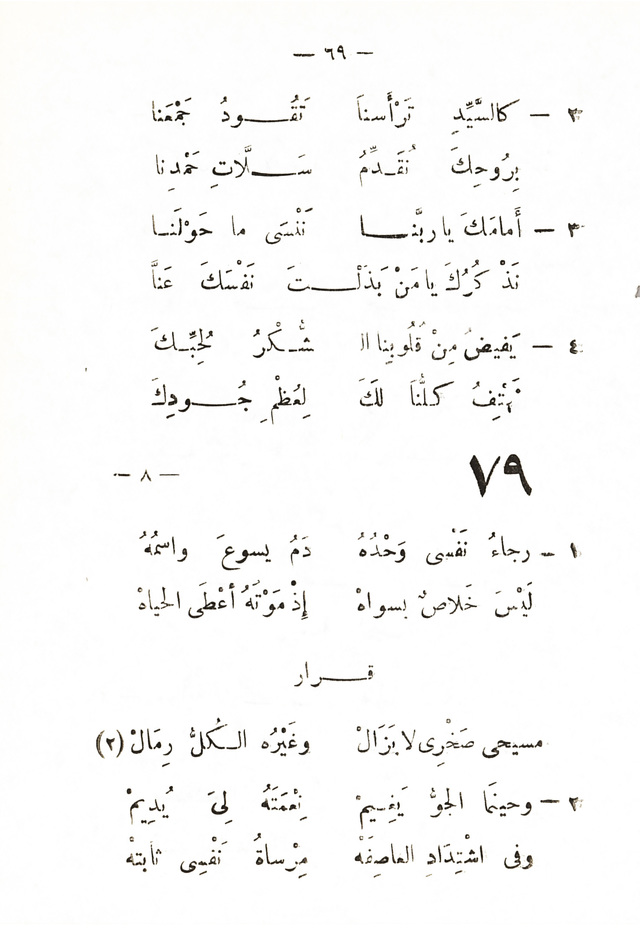 — ٦٩ —
٢ — كالسَّيِّدِ تَرْأَسنا تَقُودُ جَمْعَنا
بِرُوحِكَ نُقَدِّمُ سَلَّاتِ حَمْدِنا
٣ — أَمامَكَ يا ربَّنا نَنْسَى ما حَوْلَنا
نَذْكُرُكَ يا مَنْ بَذَلْتَ نَفْسَكَ عَنَّا
٤ — يَفيضُ مِنْ قُلُوبِنا ال شُكْرُ لِحُبِّكَ
نَهْتِفُ كلُّنَا لَكَ لِعُظْمِ جُودِكَ
٧٩ — ٨ —
١ — رجاءُ نَفْسى وَحْدُهُ دَمُ يسوعَ واسْمُهُ
لَيْسَ خَلاصٌ بسواهْ إِذْ مَوْتُهُ أعْطَى الحياهْ
قرار
مسيحى صَخْرِى لا يَزَالْ وغَيْرُه الكُلُّ رِمَالْ (٢)
٢ — وحينَما الجوُّ يَغِيمْ نِعْمَتَهُ لِىَ يُدِيمْ
وفى اشْتِدَادِ العاصِفَهْ مِرْساةُ نَفْسِى ثابتهْ